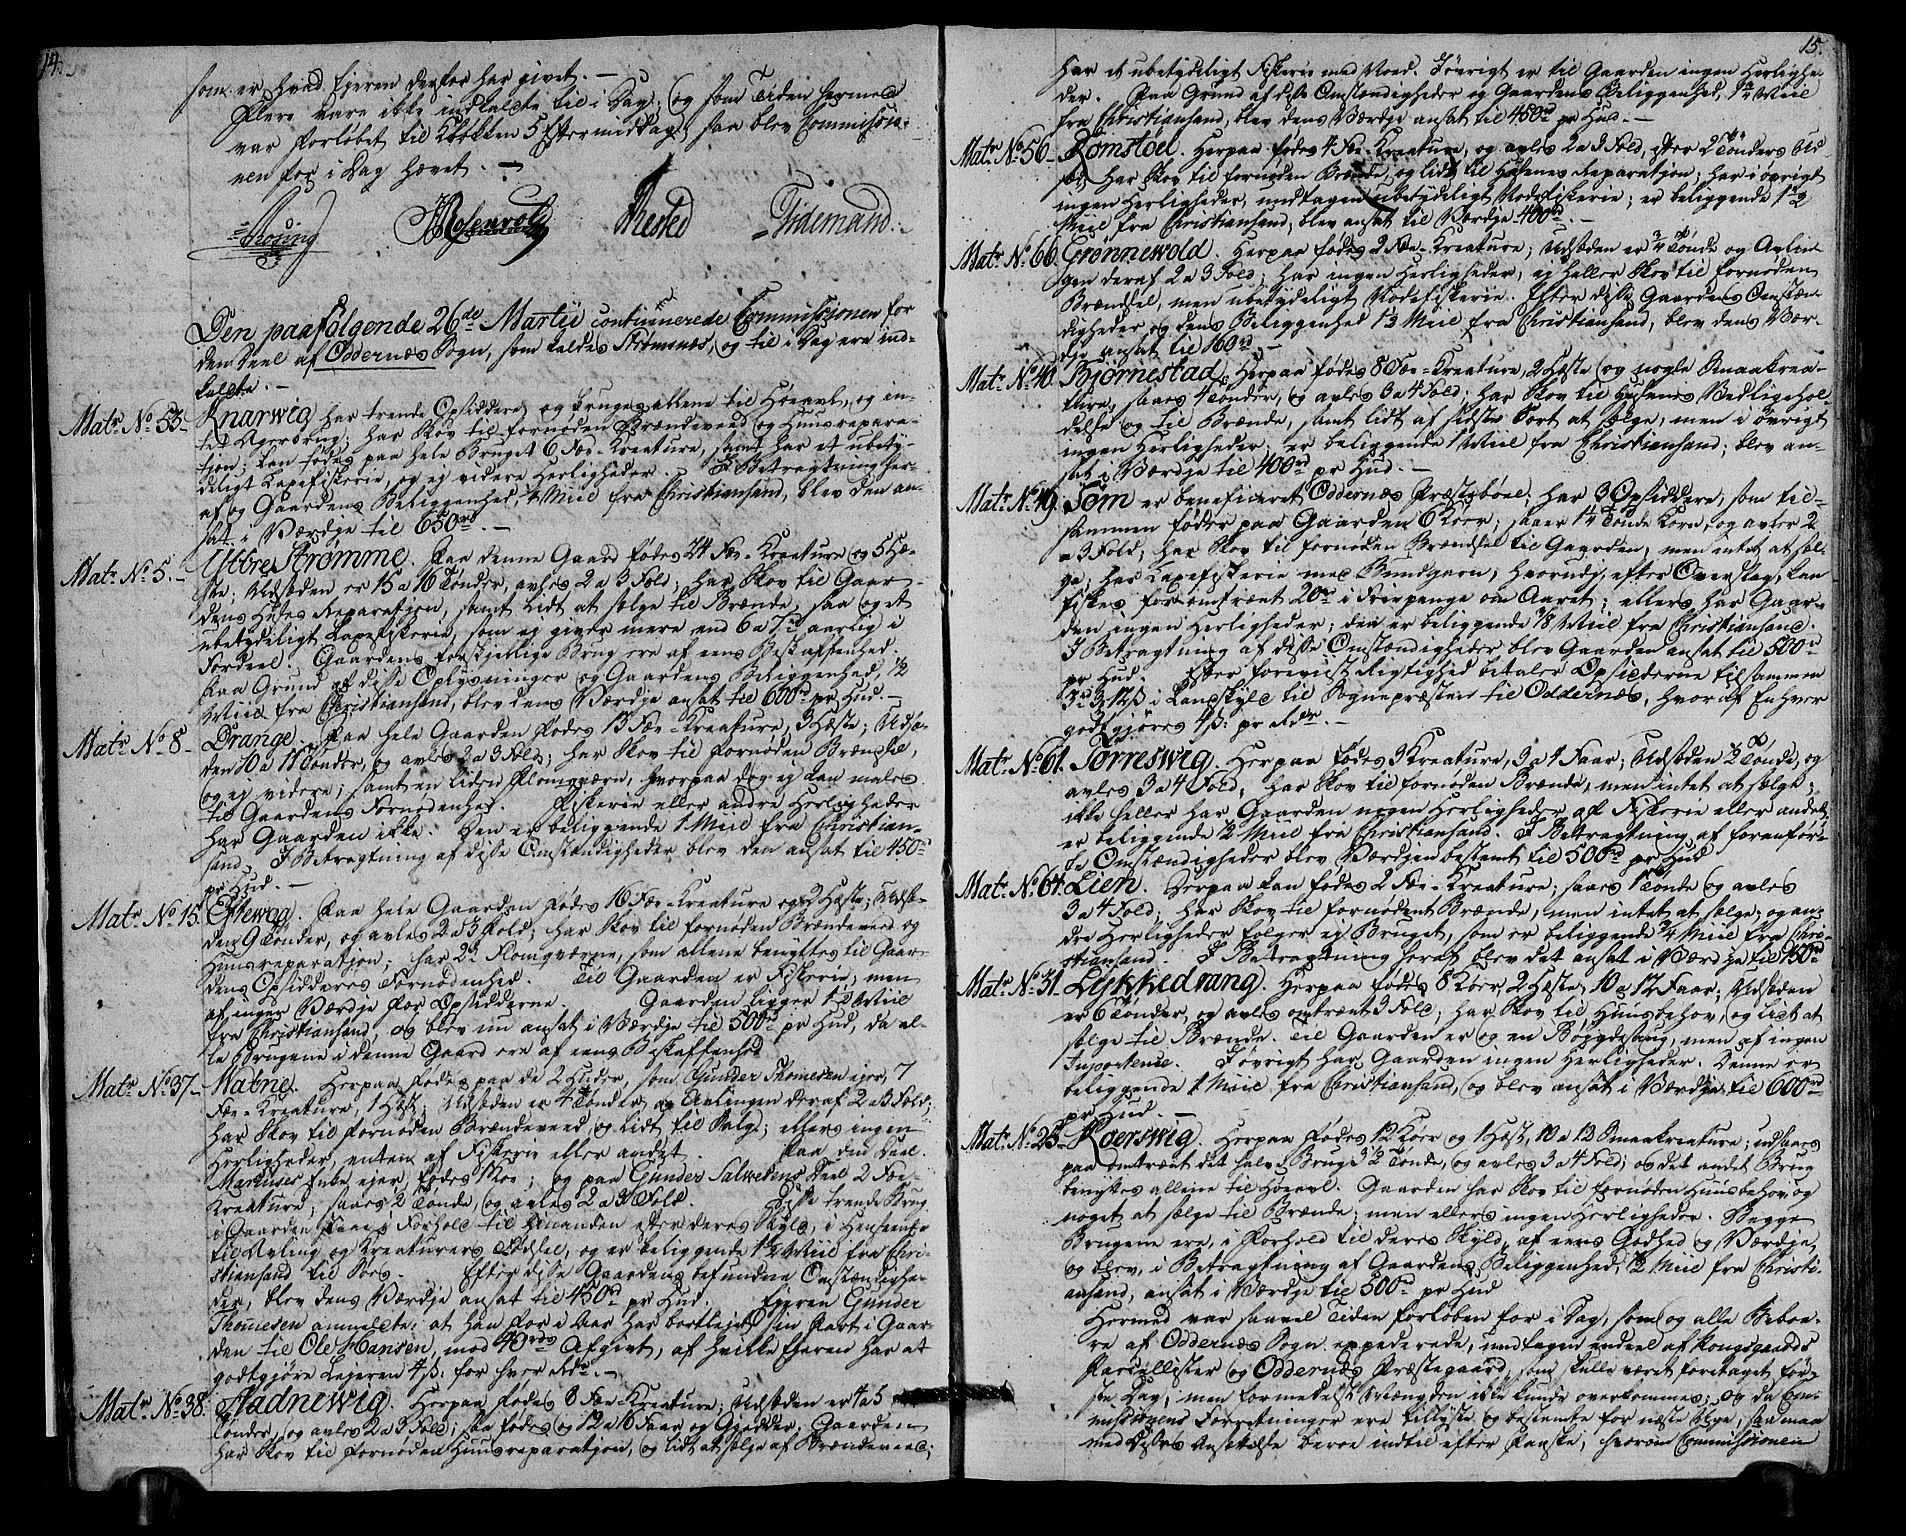 14.
som er hvad Ejeren derfor har givet. —
Flere vare ikke indkaldte til i Dag, og som Tiden hermed
var forløbet til Klokken 5 Eftermiddag, saa blev Commissio-
nen for i Dag hævet. —
Rosenvold Tidemand.
Den paafølgende 26de Martii continuerede Commissionen for
den Deel af Oddernæs Sogn, som kaldes Strømnæs, og til i Dag ere ind-
kaldte. —
Matr. No. 53. Knarwig har trende Opsiddere, og bruges allene til Høeavl, og in-
tet Agerbrug; har Skov til fornøden Brændeveed og Huusrepara-
tion; kan fødes paa hele Bruget 6 Fæ-Kreature, samt har et ubety-
deligt Laxefiskerie, og ej videre Herligheder. I Betragtning her-
af og Gaardens Beliggenhed, 1/4 Miil fra Christiansand, blev den an-
sat i Værdje til 650rd. —
Matr. No. 5. Ytbre Strømme. Paa denne Gaard fødes 24 Fæ-Kreature og 5 Hæ-
ste; Udsæden er 15 a 16 Tønder, avles 2 a 3 Fold; har Skov til Gaar-
dens Huses Reparation, samt lidt at sælge til Brænde, saa og et
ubetydeligt Laxefiskerie, som ej giver mere end 6 a 7rd aarlig i
Fordeel. Gaardens forskjellige Brug ere af eens Beskaffenhed.
Paa Grund af disse Oplysninger og Gaardens Beliggenhed, 1/2
Miil fra Christiansand, blev dens Værdje ansat til 600rd pr Hud. —
Matr. No. 8. Drange. Paa hele Gaarden fødes 15 Fæ-Kreature, 3 Hæste; Udsæ-
den 10 a 11 Tønder, og avles 2 a 3 Fold; har Skov til fornøden Brændsel,
og ej videre; samt en liden Flomqværn, hvorpaa dog ej kan males
til Gaardens Fornødenhed. Fiskerie eller andre Herligheder
har Gaarden ikke. Den er beliggende 1 Miil fra Christian-
sand. I Betragtning af disse Omstændigheder blev den ansat til 450rd
pr Hud. —
Matr. No. 15. Eftewag. Paa hele Gaarden fødes 16 Fæ-Kreature og 2 Hæste; Udsæ-
den 9 Tønder, og avles 2 a 3 Fold; har Skov til fornøden Brændeveed og
Huusreparation; har 2de Flomqværne, som allene benyttes til Gaar-
dens Opsidderes Fornødenhed. Til Gaarden er Fiskerie, men
af ingen Værdje for Opsidderne. Gaarden ligger 1 Miil
fra Christiansand, og blev nu ansat i Værdje til 500rd pr Hud, da al-
le Brugene i denne Gaard ere af eens Beskaffenhed.
Matr. No. 37. Natne. Herpaa fødes paa de 2 Huder, som Gunder Thomesen ejer, 7
Fæ-Kreature, 1 Hæst; Udsæden er 4 Tønder, og Avlingen deraf 2 a 3 Fold;
har Skov til fornøden Brændeveed, og lidt til Salg; ellers ingen
Herligheder, enten af Fiskerie eller andet. Paa den Deel
Marthe Enke ejer, fødes 1 Koe; og paa Gunder Salvesens Deel 2 Fæ-
Kreature, saaes 2 Tønde, og avles 2 a 3 Fold. Disse trende Brug
i Gaarden staae i Forhold til hinanden efter deres Skyld, i Henseende
til Avling og Kreaturers Fødsel, og er beliggende 1 1/2 Miil fra Chri-
stiansand til Søes. Efter disse Gaardens befundne Omstændighe-
der, blev dens Værdje ansat til 450rd pr Hud. Ejeren Gunder
Thomesen anmeldte: at han for i Aar har bortlejet sin Part i Gaar-
den til Ole Hansen, mod 40 rdrs Afgivt, af hvilke Ejeren har at
godtgjøre Lejeren 4ß. for hver rdr. —
Matr. No. 38. Stadnewig. Herpaa fødes 8 Fæ-Kreature; Udsæden er 4 a 5
Tønder, og avles 2 a 3 Fold; saa fødes og 12 a 16 Faar og Gjedder. Gaarden
har Skov til fornøden Huusreparation, og lidt at sælge af Brændeveed;
15.
har et ubetydeligt Fiskerie med Noed. Iøvrigt er til Gaarden ingen Herlighe-
der. Paa Grund af disse Omstændigheder og Gaardens Beliggenhed, 1 1/4 Miil
fra Christiansand, blev dens Værdje ansat til 450rd pr Hud. —
Matr. No. 56. Romstøel. Herpaa fødes 4 Fæ-Kreature, og avles 2 a 3 Fold, efter 2 Tønders Ud-
sæd; har Skov til fornøden Brænde, og lidt til Husenes Reparation; har i øvrigt
ingen Herligheder, undtagen ubetydeligt Nodefiskerie; er beliggende 1 1/2
Miil fra Christiansand, blev ansat til Værdje 400rd. —
Matr. No. 66. Grønnewold. Herpaa fødes 2 Fæ-Kreature; Udsæden er 3/4 Tønde og Avlin-
gen deraf 2 a 3 Fold; har ingen Herligheder, ej heller Skov til fornøden
Brændsel, men ubetydeligt Nodefiskerie. Efter disse Gaardens Omstæn-
digheder og dens Beliggenhed 1 1/2 Miil fra Christiansand, blev dens Vær-
dje ansat til 160rd. —
Matr. No. 40. Bjørnestad. Herpaa fødes 8 Fæ-Kreature, 2 Hæste og nogle Smaakrea-
ture, saaes 4 Tønder, og avles 3 a 4 Fold; har Skov til Husenes Vedligehol-
delse og til Brænde, samt lidt af sidste Sort at sælge, men i øvrigt
ingen Herligheder; er beliggende 1 Miil fra Christiansand; blev an-
sat i Værdje til 400rd pr Hud. —
Matr. No. 49. Søm er beneficeret Oddernæs Præstebøel; har 3 Opsiddere, som til-
sammen føder paa Gaarden 6 Køer; saaer 1 1/4 Tønde Korn, og avler 2
a 3 Fold; har Skov til fornøden Brændsel til Gaarden, men intet at sæl-
ge; har Laxefiskerie med Bundgarn, hvorudi, efter Overslag, kan
fiskes for omtrent 20rd i Reepenge om Aaret; ellers har Gaar-
den ingen Herligheder; den er beliggende 3/8 Miil fra Christiansand.
I Betragtning af disse Omstændigheder blev Gaarden ansat til 500rd
pr Hud. Efter foreviist Rigtighed betaler Opsidderne tilsammen
3 12ß i Landskyld til Sognepræsten til Oddernæs, hvoraf Enhver
godtgjøres 4ß. pr rdr. —
Matr. No. 61. Torreswig. Herpaa fødes 3 Kreature, 3 a 4 Faar; Udsæden 1/2 Tønde, og
avles 3 a 4 Fold; har Skov til fornøden Brænde, men intet at sælge;
ikke heller har Gaarden nogen Herligheder af Fiskerie eller andet;
er beliggende 1/2 Miil fra Christiansand. I Betragtning af foranfør-
te Omstændigheder blev Værdjen bestemt til 500rd pr Hud
Matr. No. 64. Lien. Herpaa kan fødes 2 Fæ-Kreature; saaes 1 Tønde og avles
3 a 4 Fold; har Skov til fornødent Brænde, men intet at sælge; og an-
dre Herligheder følger ej Bruget, som er beliggende 3/4 Miil fra Chri-
stiansand. I Betragtning heraf blev det ansat i Værdje til 150rd
Matr. No. 31. Lykkedrang. Herpaa fødes 8 Køer, 2 Hæste, 10 a 12 Faar; Udsæden
er 6 Tønder, og avles omtrent 3 Fold; har Skov til Huusbehov, og lidt at
sælge til Brænde. Til Gaarden er og en Bøigdesaug, men af ingen
Importence. Iøvrigt har Gaarden ingen Herligheder. Denne er
beliggende 1 Miil fra Christiansand, og blev ansat i Værdje til 600rd
pr Hud. —
Matr. No. 25. Koerswig. Herpaa fødes 12 Køer og 1 Hæst, 10 a 12 Smaakreature; udsaaes
paa omtrent det halve Brug 3 1/2 Tønde, og avles 3 a 4 Fold; og det andet Brug
benyttes allene til Høeavl. Gaarden har Skov til fornøden Huusbehov og
noget at sælge til Brænde; men ellers ingen Herligheder. Begge
Brugene ere, i Forhold til deres Skyld, af eens Godhed og Værdje,
og blev, i Betragtning af Gaardens Beliggenhed, 1/2 Miil fra Christi-
ansand, ansat i Værdje til 500rd pr Hud
Hermed var saavel Tiden forløben for i Dag, som og alle Beboe-
re af Oddernæs Sogn expederede, undtagen endeel af Kongsgaards
Parcellister og Oddernæs Præstegaard, som skulle været foretaget før-
ste Dag; men formedelst Mængden ikke kunde overkommes; og da Com-
missionens Forretninger ere tillyste og bestemte for næste Uge, saa maa
med disses Ansættelse beroe indtil efter Paaske, hvorom Commissionen